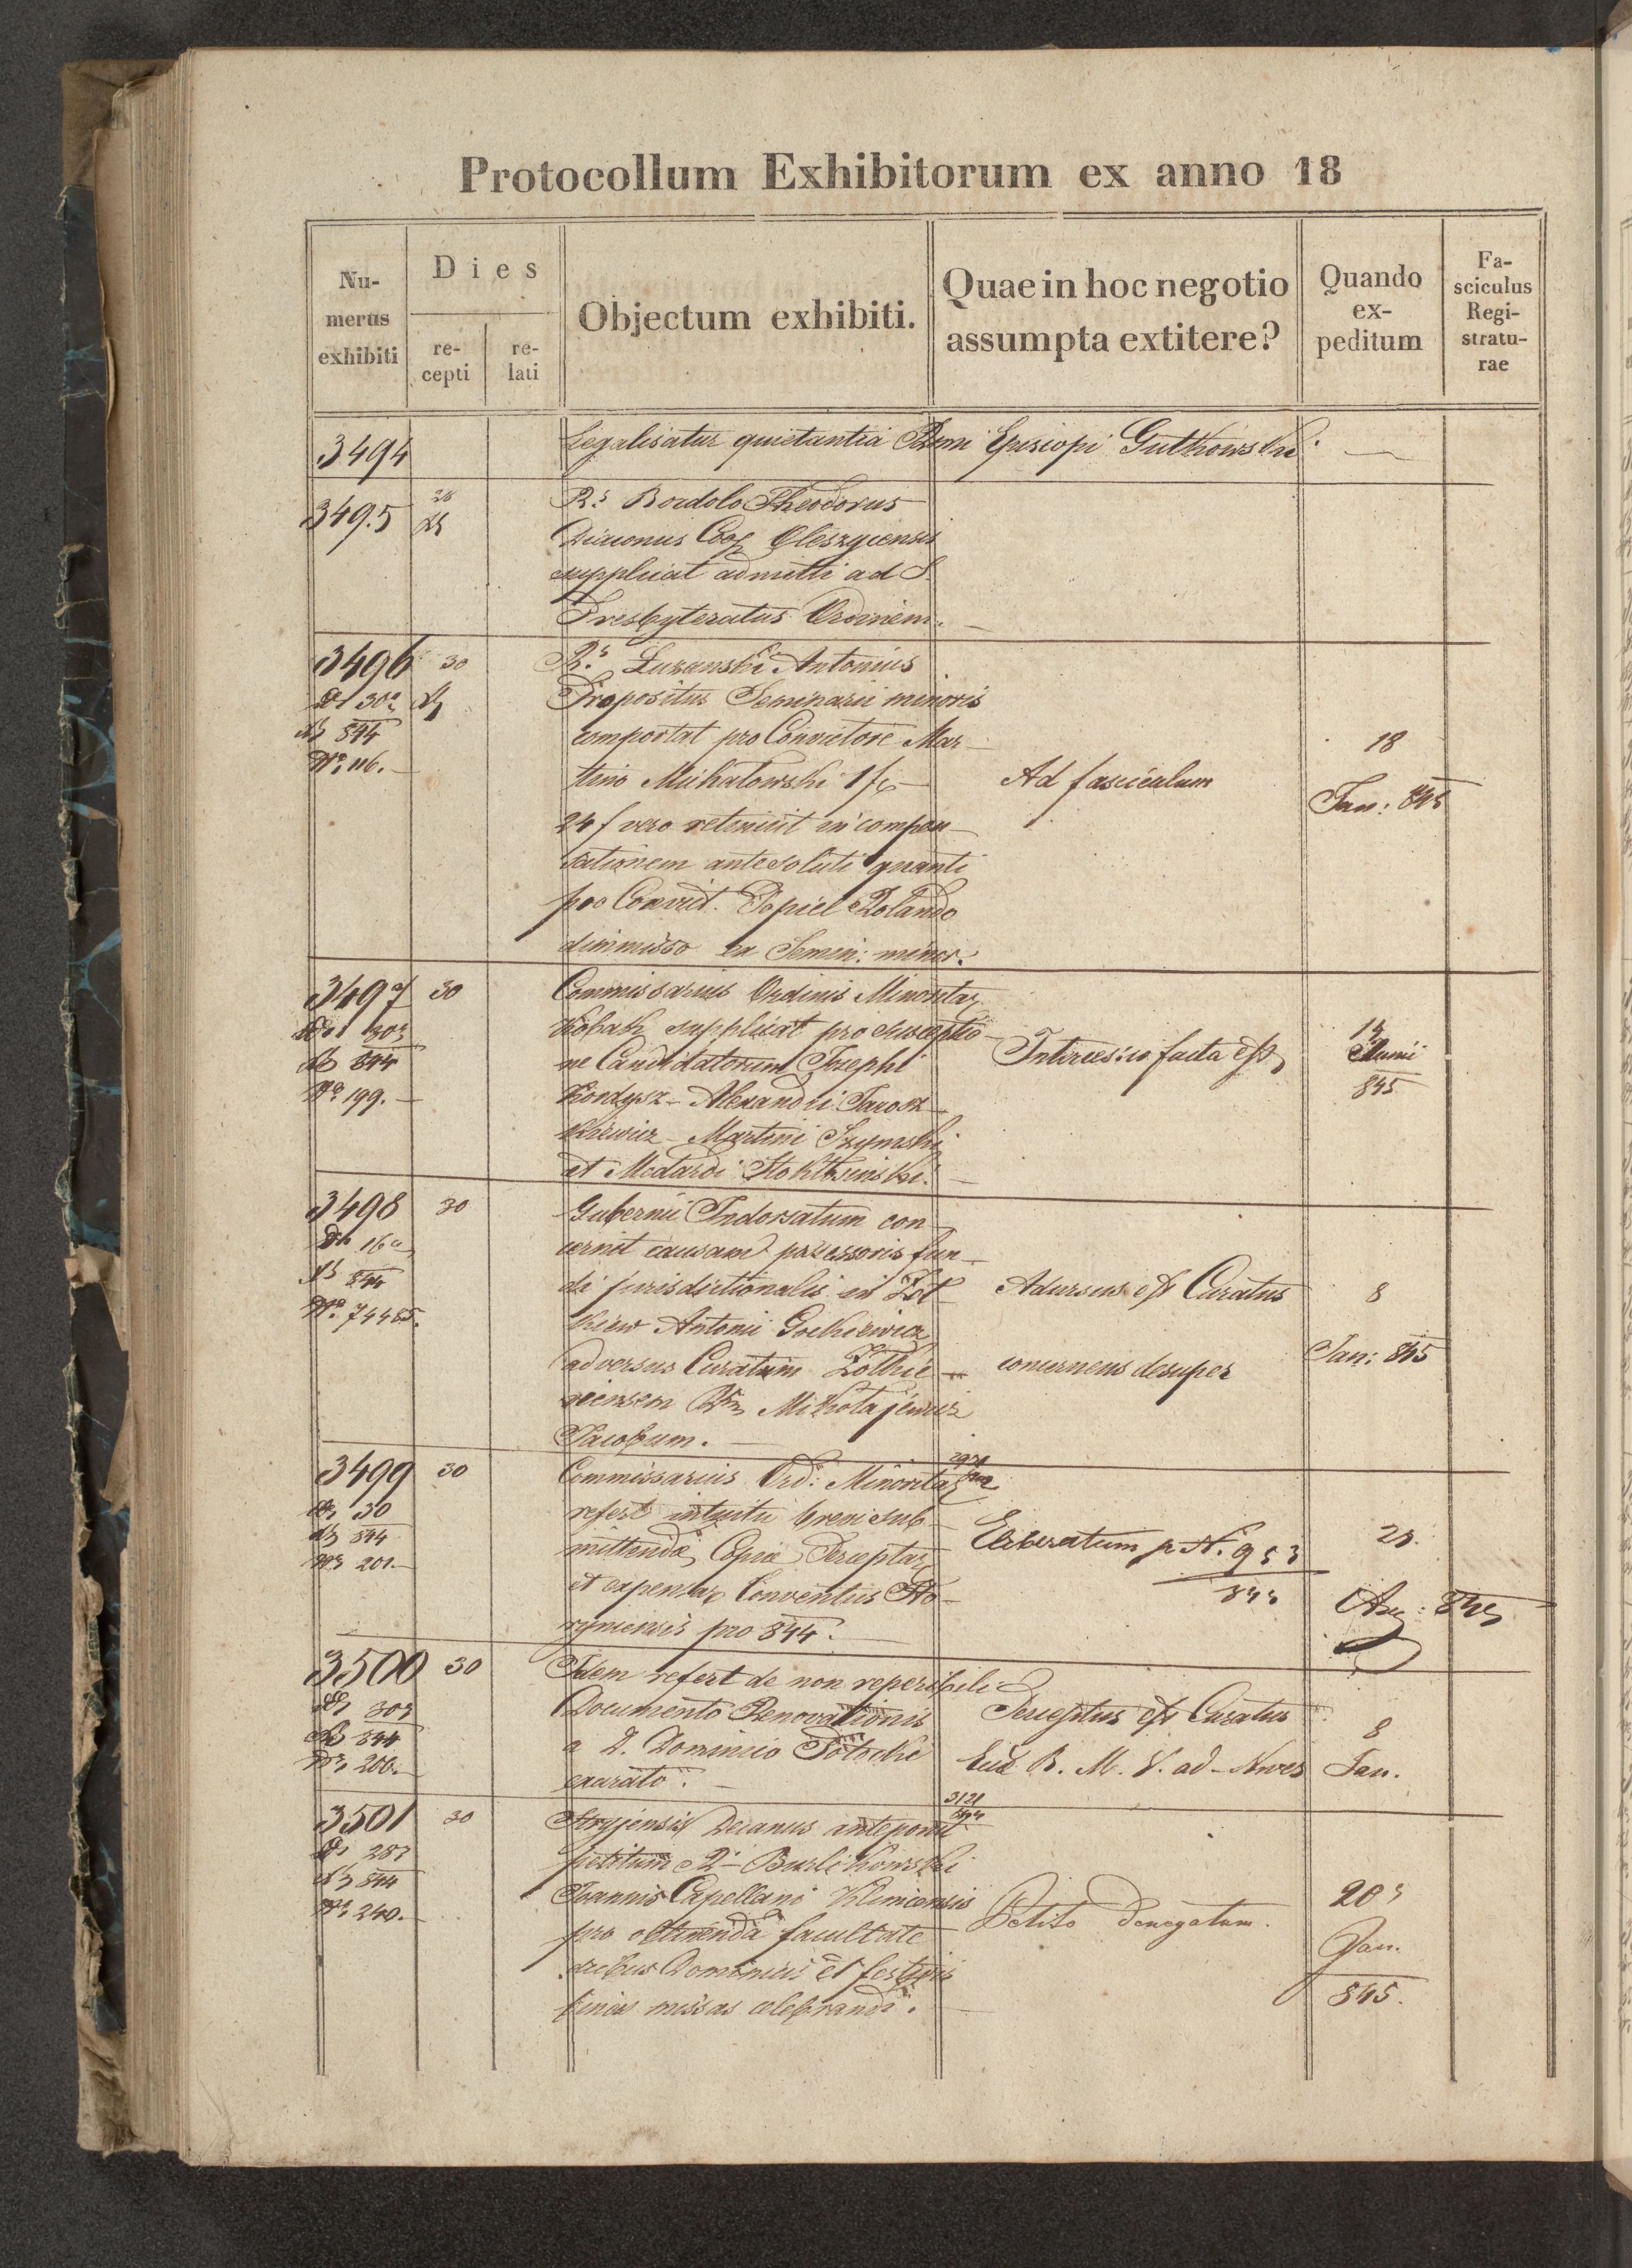 Protocollum Exhibitorum ex anno 18
Nu-
merus
exhibiti
Dies
re-
cepti
re-
lati
Objectum exhibiti.
Quae in hoc negotio
assumpta extitere?
Quando
ex-
peditum
Fa-
sciculus
Regi-
stratu-
rae
3494
Legalisatur quietantia Episcopi Gutkowski
3495
28
Theodorus
Diaconus Coop Oleszycensis
supplicat admitti ad S.
Presbyteratus Ordinem.
3496 30
844
No 116.
Antonius
Propositus Seminarii minoris
comportat pro Convictore Mar-
tino Michałowski 1 f
24 f vero retinuit in compen-
sationem antesoluti quanti
pro Convict. Popiel Rolando
dimmisso ex Semin: minor.
Ad fasciculum
18
Jan: 845
3497 30
844
No 199.
Commissarius Ordinis Minoritar
supplicat pro susceptio-
ne Candidatorum Josephi
Alexandri Jarosz-
kiewicz - Martini Szymski
et Medardi
Intercessio facta est
845
3498 30
16
844
No 74485.
Gubernii Indorsatum con-
cernit causam possessoris fun-
di jurisdictionalis in Żół-
kiew Antonii
adversus Curatum Żołkie-
viensem Mikołajewicz
Jacobum.
est Curatus
concernens desuper
8
Jan: 845
3499 30
30
844
No 201.
Commissarius Ord: Minoritar
refert intuitu brevi sub-
mittenda Copia Perceptar
et expensar Conventus Ho-
rynensis pro 844.
Exiberatum p N. 953
25.
Aug: 845
3500 30
30
844
No 200.
Idem refert de non reperibili
Documento Renovationis
a D. Dominio Potocki
exarato.
est Curatus
B. M. V. ad Nives
8
Jan.
3501 30
28
844
No 240.
Stryjensis Decanus anteponit
petitum
Joannis Capellani Klimicensis
pro obtinenda facultate
diebus Dominicis et festivis
binas missas celebrandi.
3121
Petito denegatum.
20
Jan.
845.